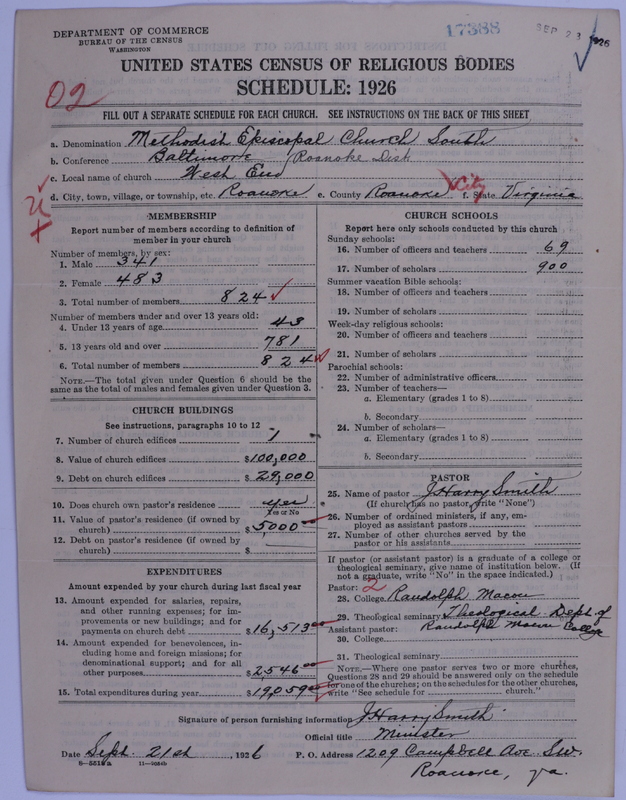 DEPARTMENT OF COMMERCE
BUREAU OF THE CENSUS
WASHINGTON
17388
SEP 23 1926
UNITED STATES CENSUS OF RELIGIOUS BODIES
SCHEDULE: 1926
02
FILL OUT A SEPARATE SCHEDULE FOR EACH CHURCH. SEE INSTRUCTIONS ON THE BACK OF THIS SHEET
a. Denomination Methodist Episcopal Church South
b. Conference Baltimore / Roanoke Dist
c. Local name of church West End
d. City, town, village, or township, etc. Roanoke e. County Roanoke City f. State Virginia
MEMBERSHIP
Report number of members according to definition of member in your church
Number of members, by sex:
1. Male 341
2. Female 483
3. Total number of members 824
Number of members under and over 13 years old:
4. Under 13 years of age 43
5. 13 years old and over 781
6. Total number of members 824
NOTE.—The total given under Question 6 should be the same as the total of males and females given under Question 3.
CHURCH BUILDINGS
See instructions, paragraphs 10 to 12
7. Number of church edifices 1
8. Value of church edifices $100,000
9. Debt on church edifices $29,000
10. Does church own pastor's residence yes
Yes or No
11. Value of pastor's residence (if owned by church) $5000
12. Debt on pastor's residence (if owned by church) $
EXPENDITURES
Amount expended by your church during last fiscal year
13. Amount expended for salaries, repairs, and other running expenses; for improvements or new buildings; and for payments on church debt $16,513.00
14. Amount expended for benevolences, including home and foreign missions; for denominational support; and for all other purposes $2546.00
15. Total expenditures during year $19,059.00
CHURCH SCHOOLS
Report here only schools conducted by this church
Sunday schools:
16. Number of officers and teachers 69
17. Number of scholars 900
Summer vacation Bible schools:
18. Number of officers and teachers
19. Number of scholars
Week-day religious schools:
20. Number of officers and teachers
21. Number of scholars
Parochial schools:
22. Number of administrative officers
23. Number of teachers—
a. Elementary (grades 1 to 8)
b. Secondary
24. Number of scholars—
a. Elementary (grades 1 to 8)
b. Secondary
PASTOR
25. Name of pastor J Harry Smith
(If church has no pastor, write "None")
26. Number of ordained ministers, if any, employed as assistant pastors
27. Number of other churches served by the pastor or his assistants
If pastor (or assistant pastor) is a graduate of a college or theological seminary, give name of institution below. (If not a graduate, write "No" in the space indicated.)
Pastor: 2
28. College Randolph Macon
29. Theological seminary Theological Dept. of
Randolph Macon College
Assistant pastor:
30. College
31. Theological seminary
NOTE.—Where one pastor serves two or more churches, Questions 28 and 29 should be answered only on the schedule for one of the churches; on the schedules for the other churches, write "See schedule for church."
Signature of person furnishing information J Harry Smith
Official title Minister
Date Sept. 21st, 1926 P. O. Address 1209 Campbell Ave. S.W.
Roanoke, Va.